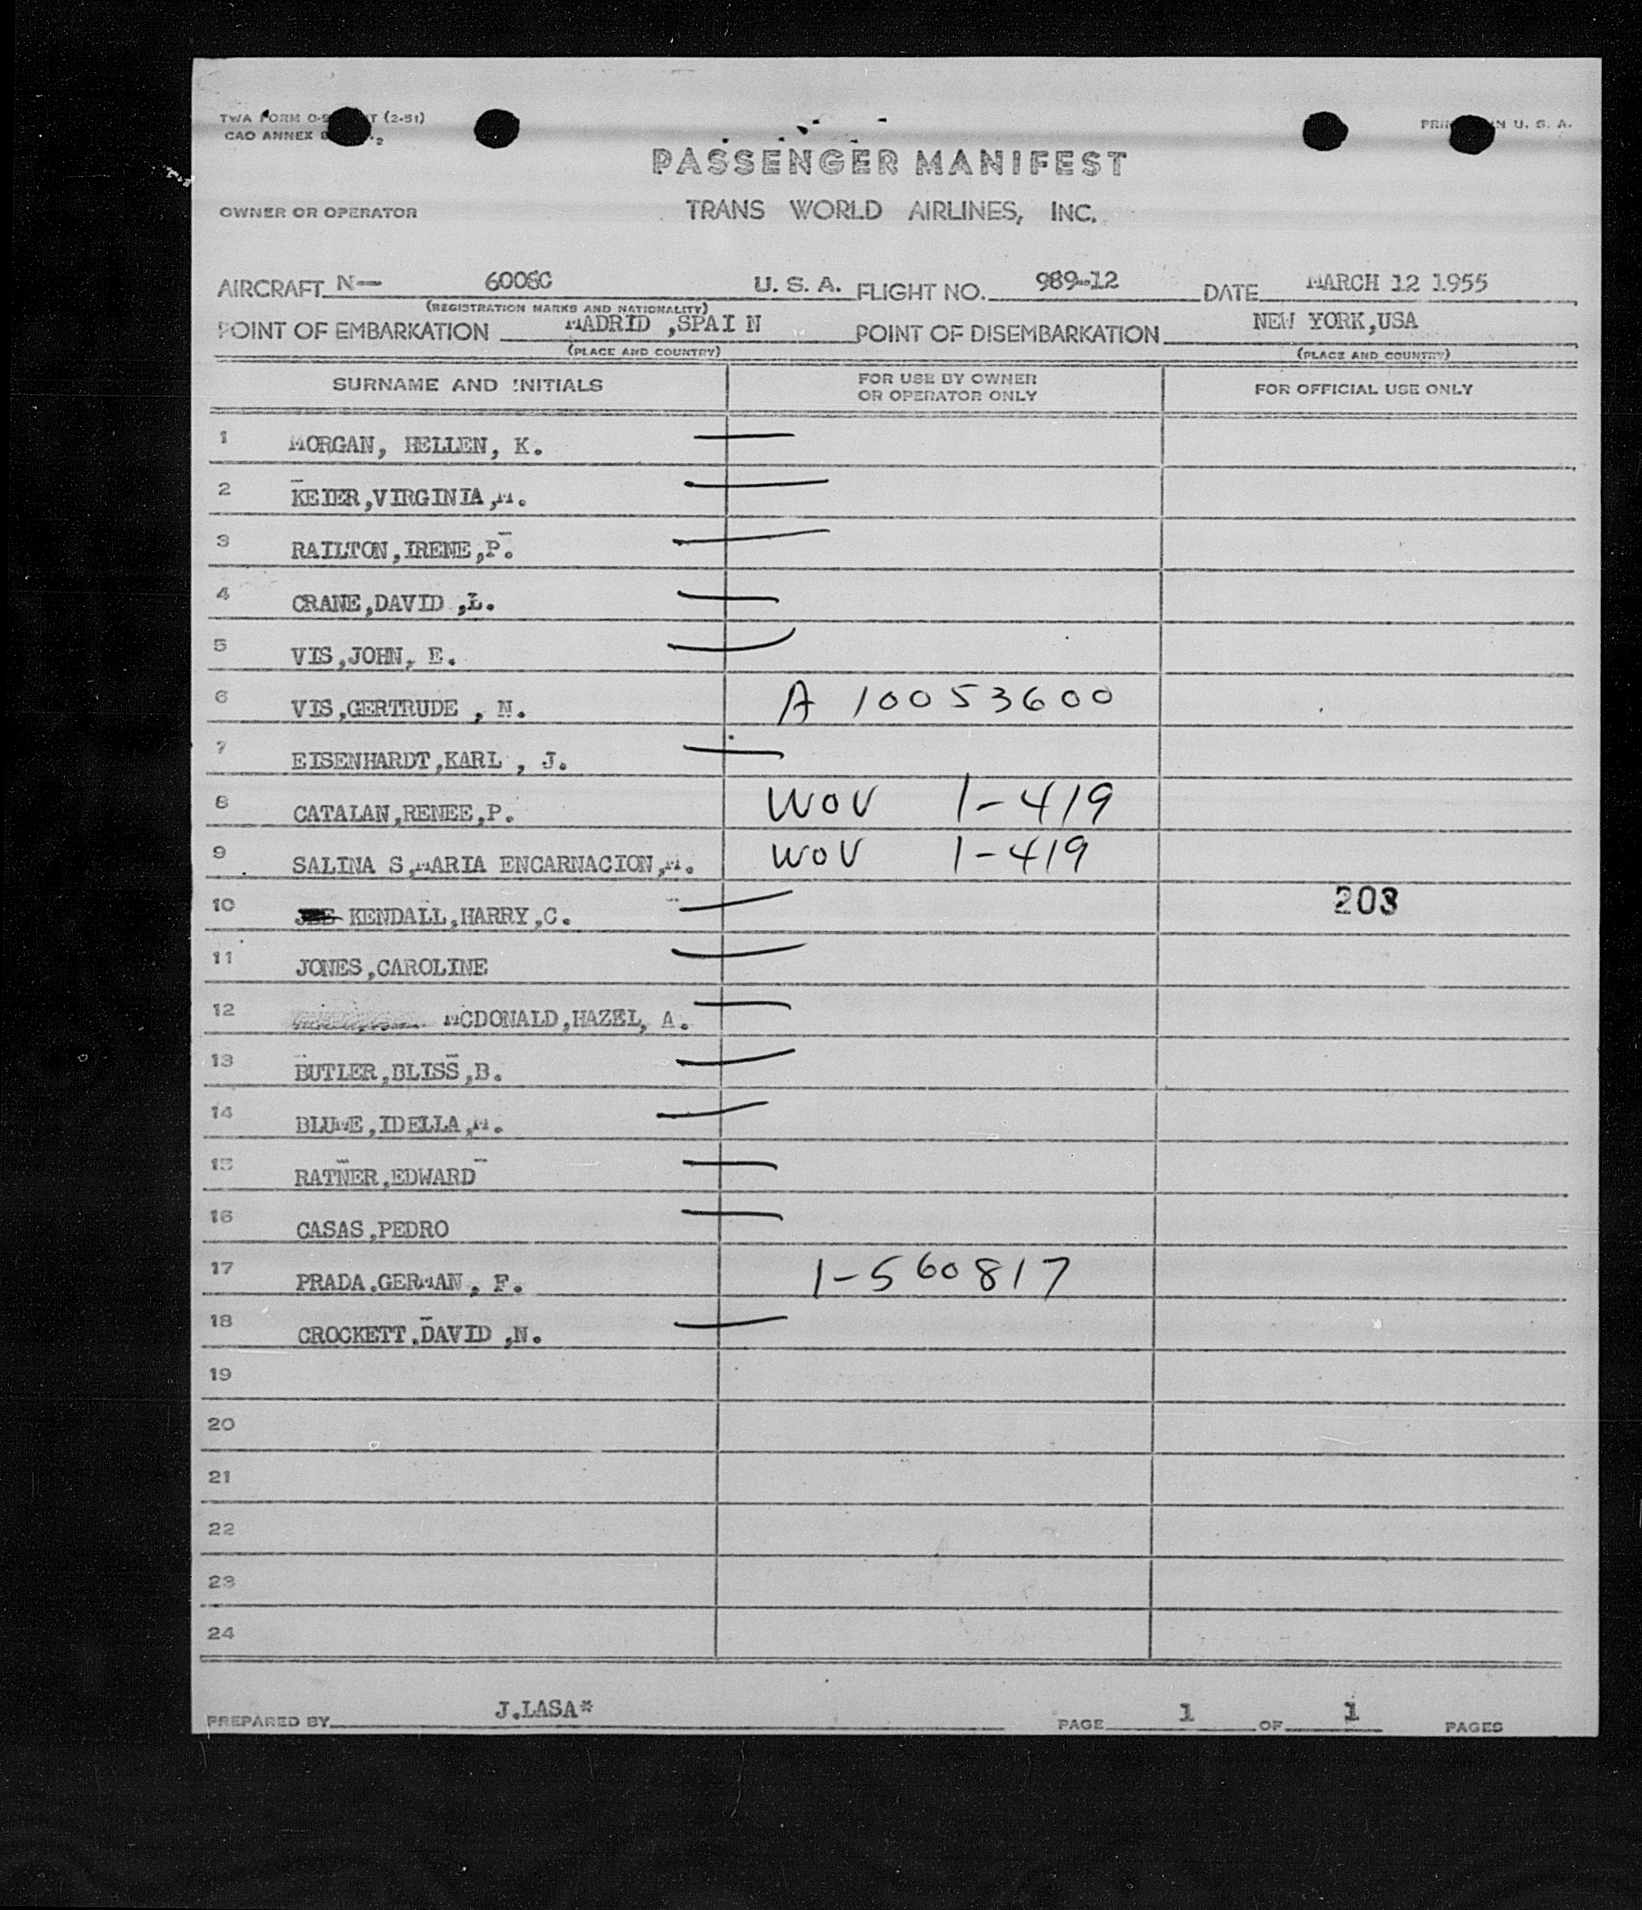 TWA FORM O- (2-51)
CAO ANNEX
PRIN IN U. S. A.
PASSENGER MANIFEST
OWNER OR OPERATOR TRANS WORLD AIRLINES, INC.
AIRCRAFT N— 6006C U. S. A. FLIGHT NO. 989-12 DATE MARCH 12 1955
(REGISTRATION MARKS AND NATIONALITY)
POINT OF EMBARKATION MADRID ,SPAI N POINT OF DISEMBARKATION NEW YORK,USA
(PLACE AND COUNTRY) (PLACE AND COUNTRY)
SURNAME AND INITIALS FOR USE BY OWNER OR OPERATOR ONLY FOR OFFICIAL USE ONLY
1 MORGAN, HELLEN, K.
2 KEIER,VIRGINIA,M.
3 RAILTON,IRENE,P.
4 CRANE,DAVID ,L.
5 VIS,JOHN, E.
6 VIS,GERTRUDE , N. A 10053600
7 EISENHARDT,KARL , J.
8 CATALAN,RENEE,P. WOV 1-419
9 SALINA S,MARIA ENCARNACION,M. WOV 1-419
10 KENDALL,HARRY,C. 203
11 JONES,CAROLINE
12 MCDONALD,HAZEL, A.
13 BUTLER,BLISS,B.
14 BLUME,IDELLA,M.
15 RATNER,EDWARD
16 CASAS,PEDRO
17 PRADA,GERMAN, F. 1-560817
18 CROCKETT,DAVID ,N.
19
20
21
22
23
24
PREPARED BY J.LASA* PAGE 1 OF 1 PAGES